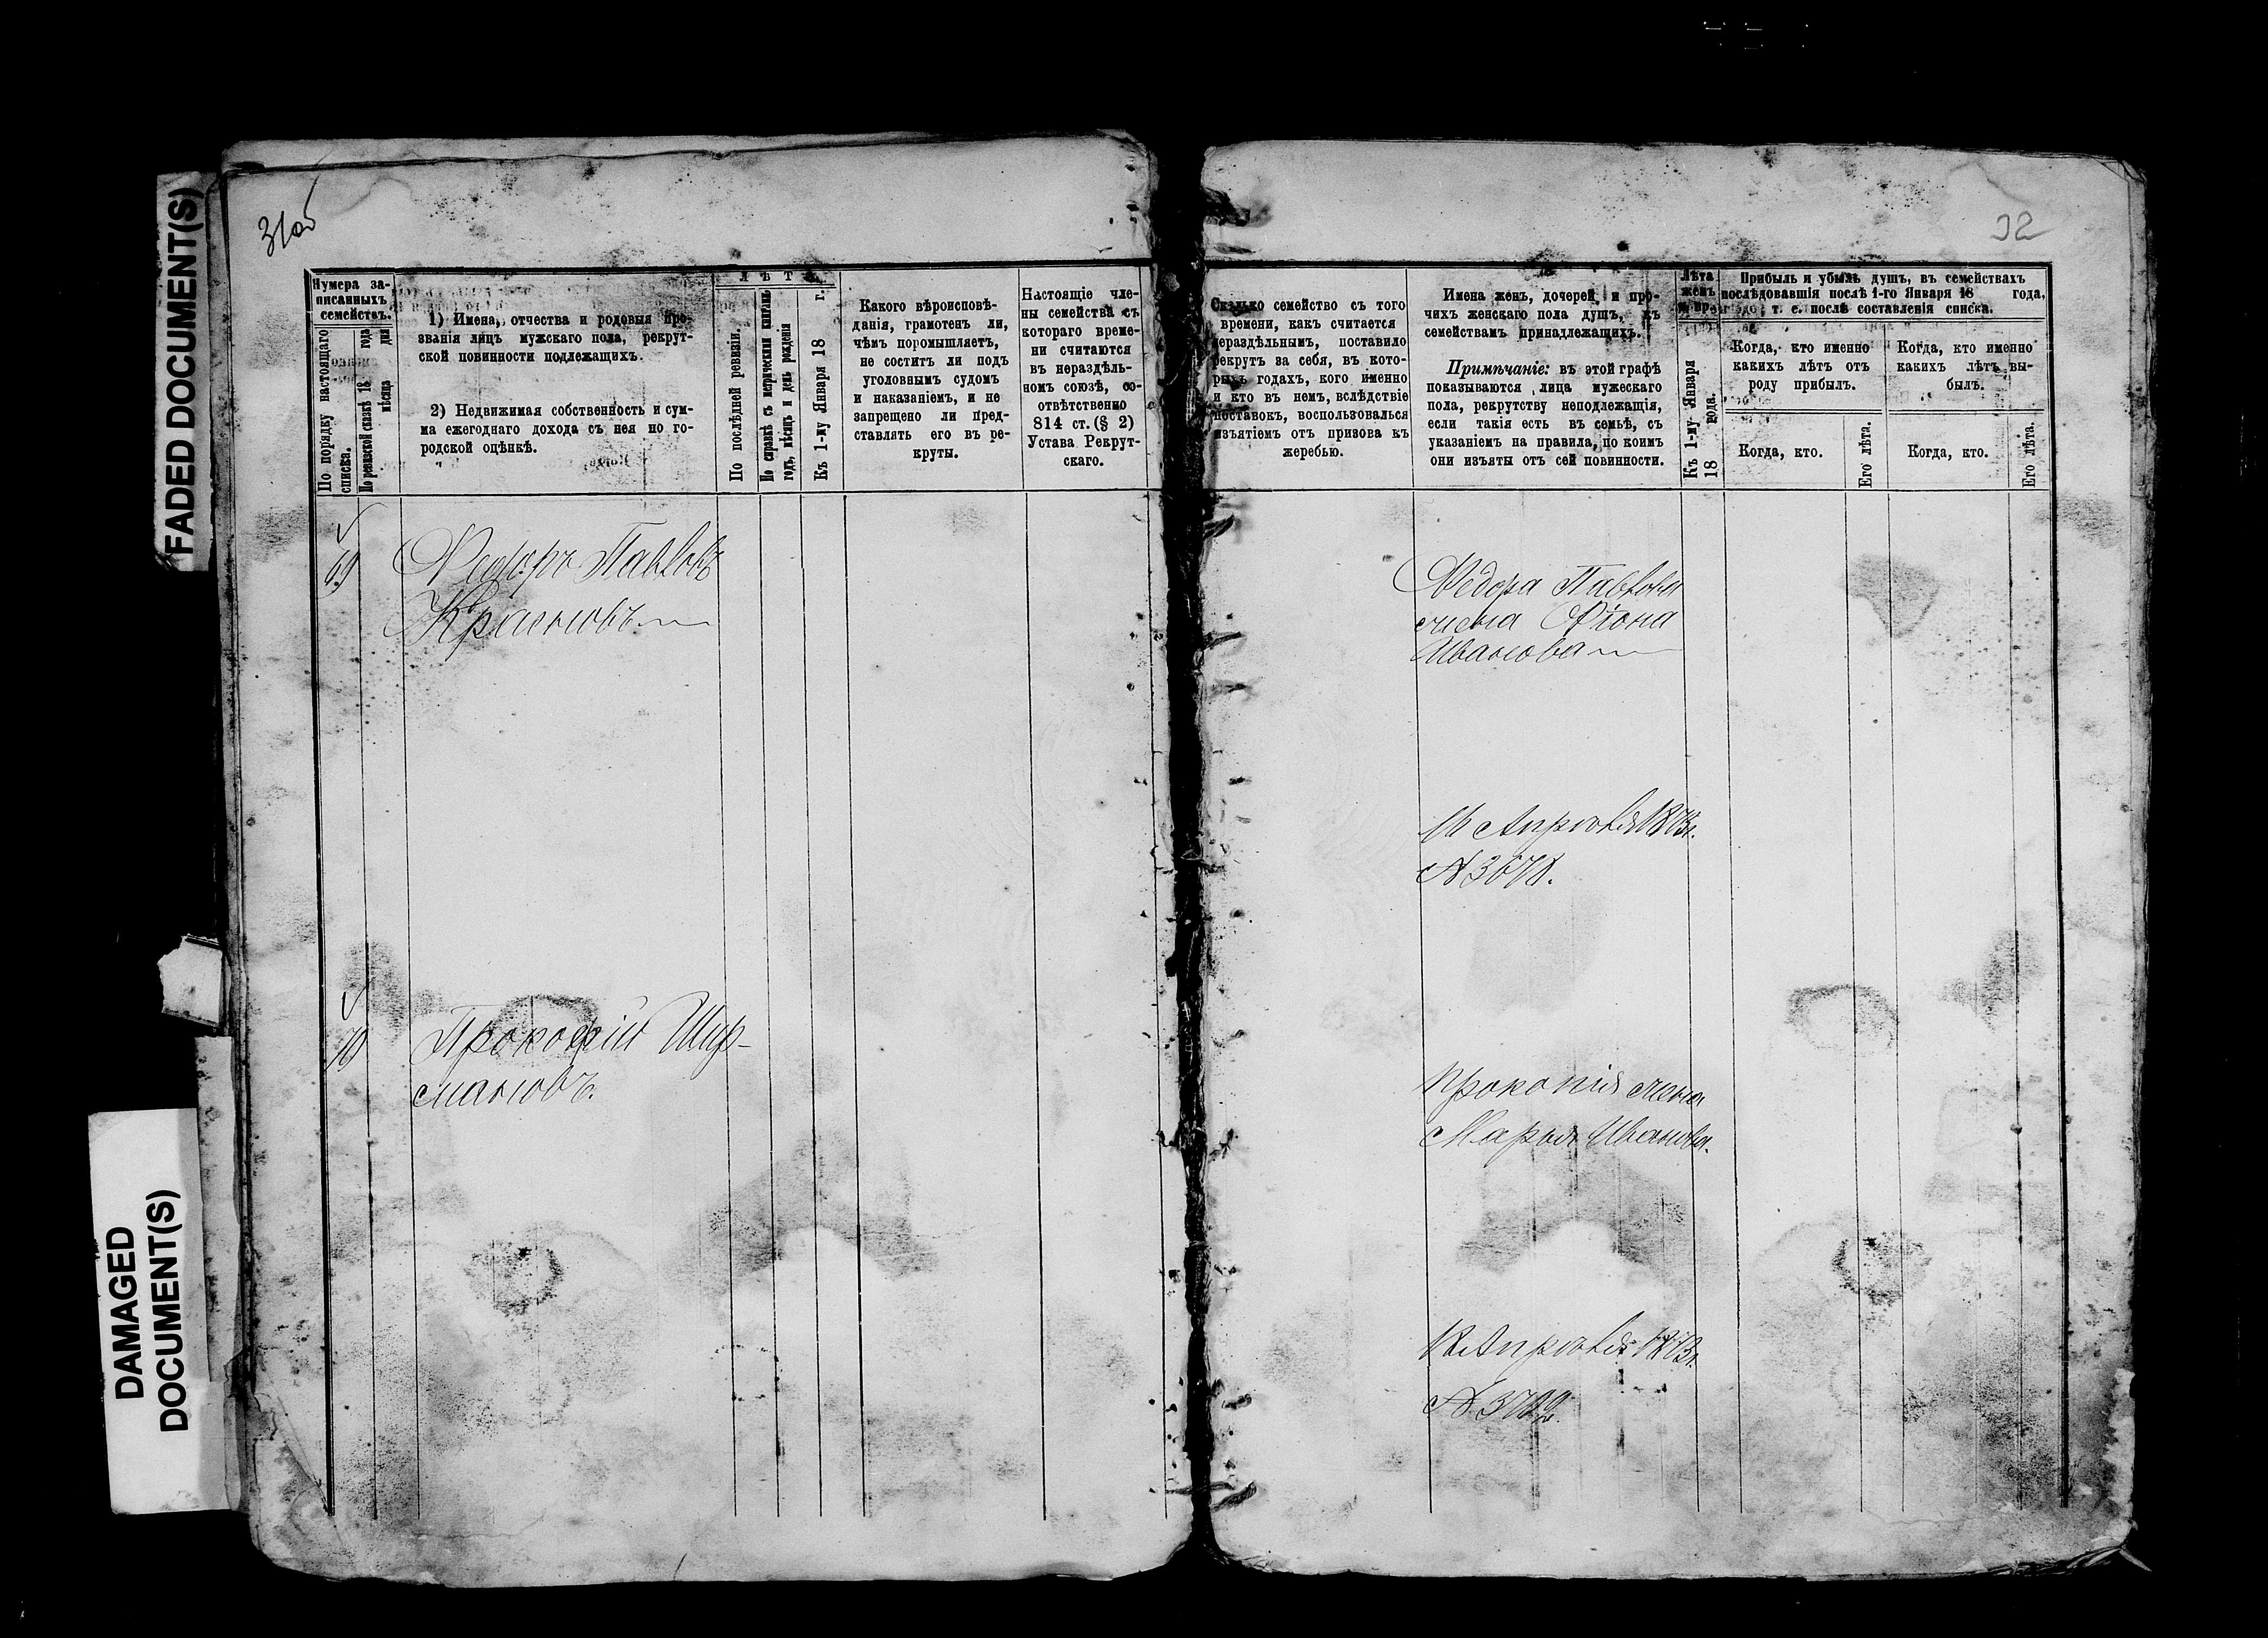 FADED DOCUMENT(S)
DAMAGED
DOCUMENT(S)
31об
Нумера за-
писанныхъ
семействъ.
По порядку настоящаго
списка.
По ревизской сказкѣ 18 года
мѣсяца дня
1) Имена, отчества и родовыя про-
званія лицъ мужскаго пола, рекрут-
ской повинности подлежащихъ.
2) Недвижимая собственность и сум-
ма ежегоднаго дохода съ нея по го-
родской оцѣнкѣ.
ЛѢТА
По послѣдней ревизіи.
По справкѣ съ метрическими книгами
годъ, мѣсяцъ и день рожденія
Къ 1-му Января 18 г.
Какого вѣроисповѣ-
данія, грамотенъ ли,
чѣмъ поромышляетъ,
не соститъ ли подъ
уголовнымъ судомъ
и наказаніемъ, и не
запрещено ли пред-
ставлять его въ ре-
круты.
Настоящіе чле-
ны семейства съ
котораго време-
ни считаются
въ нераздѣль-
номъ союзѣ, со-
отвѣтственно
814 ст. (§ 2)
Устава Рекрут-
скаго.
69
Федоръ Павловъ
Красновъ
70
Прокофій Шур-
мановъ.
32
Сколько семейство съ того
времени, какъ считается
нераздѣльнымъ, поставило
рекрутъ за себя, въ кото-
рыхъ годахъ, кого именно
и кто въ немъ, вслѣдствіе
поставокъ, воспользовалься
изъятіемъ отъ призова къ
жеребью.
Имена женъ, дочерей и про-
чихъ женскаго пола душъ, къ
семействамъ принадлежащихъ.
Примѣчаніе: въ этой графѣ
показываются лица мужескаго
пола, рекрутству неподлежащія,
если такія есть въ семьѣ, съ
указаніемъ на правила, по коимъ
они изъяты отъ сей повинности.
Лѣта
женъ
Къ 1-му Января
18 года.
Прибыль и убыль душъ, въ семействахъ
послѣдовавшія послѣ 1-го Января 18 года,
т. е. послѣ составленія списка.
Когда, кто именно
какихъ лѣтъ отъ
роду прибылъ.
Когда, кто именно
какихъ лѣтъ вы-
былъ.
Когда, кто.
Его лѣта.
Когда, кто.
Его лѣта.
Федора Павлова
жена
Иванова
Апрѣля 1873г.
Прокопія жена
Марья Иванова.
12 Апрѣля 1873г.